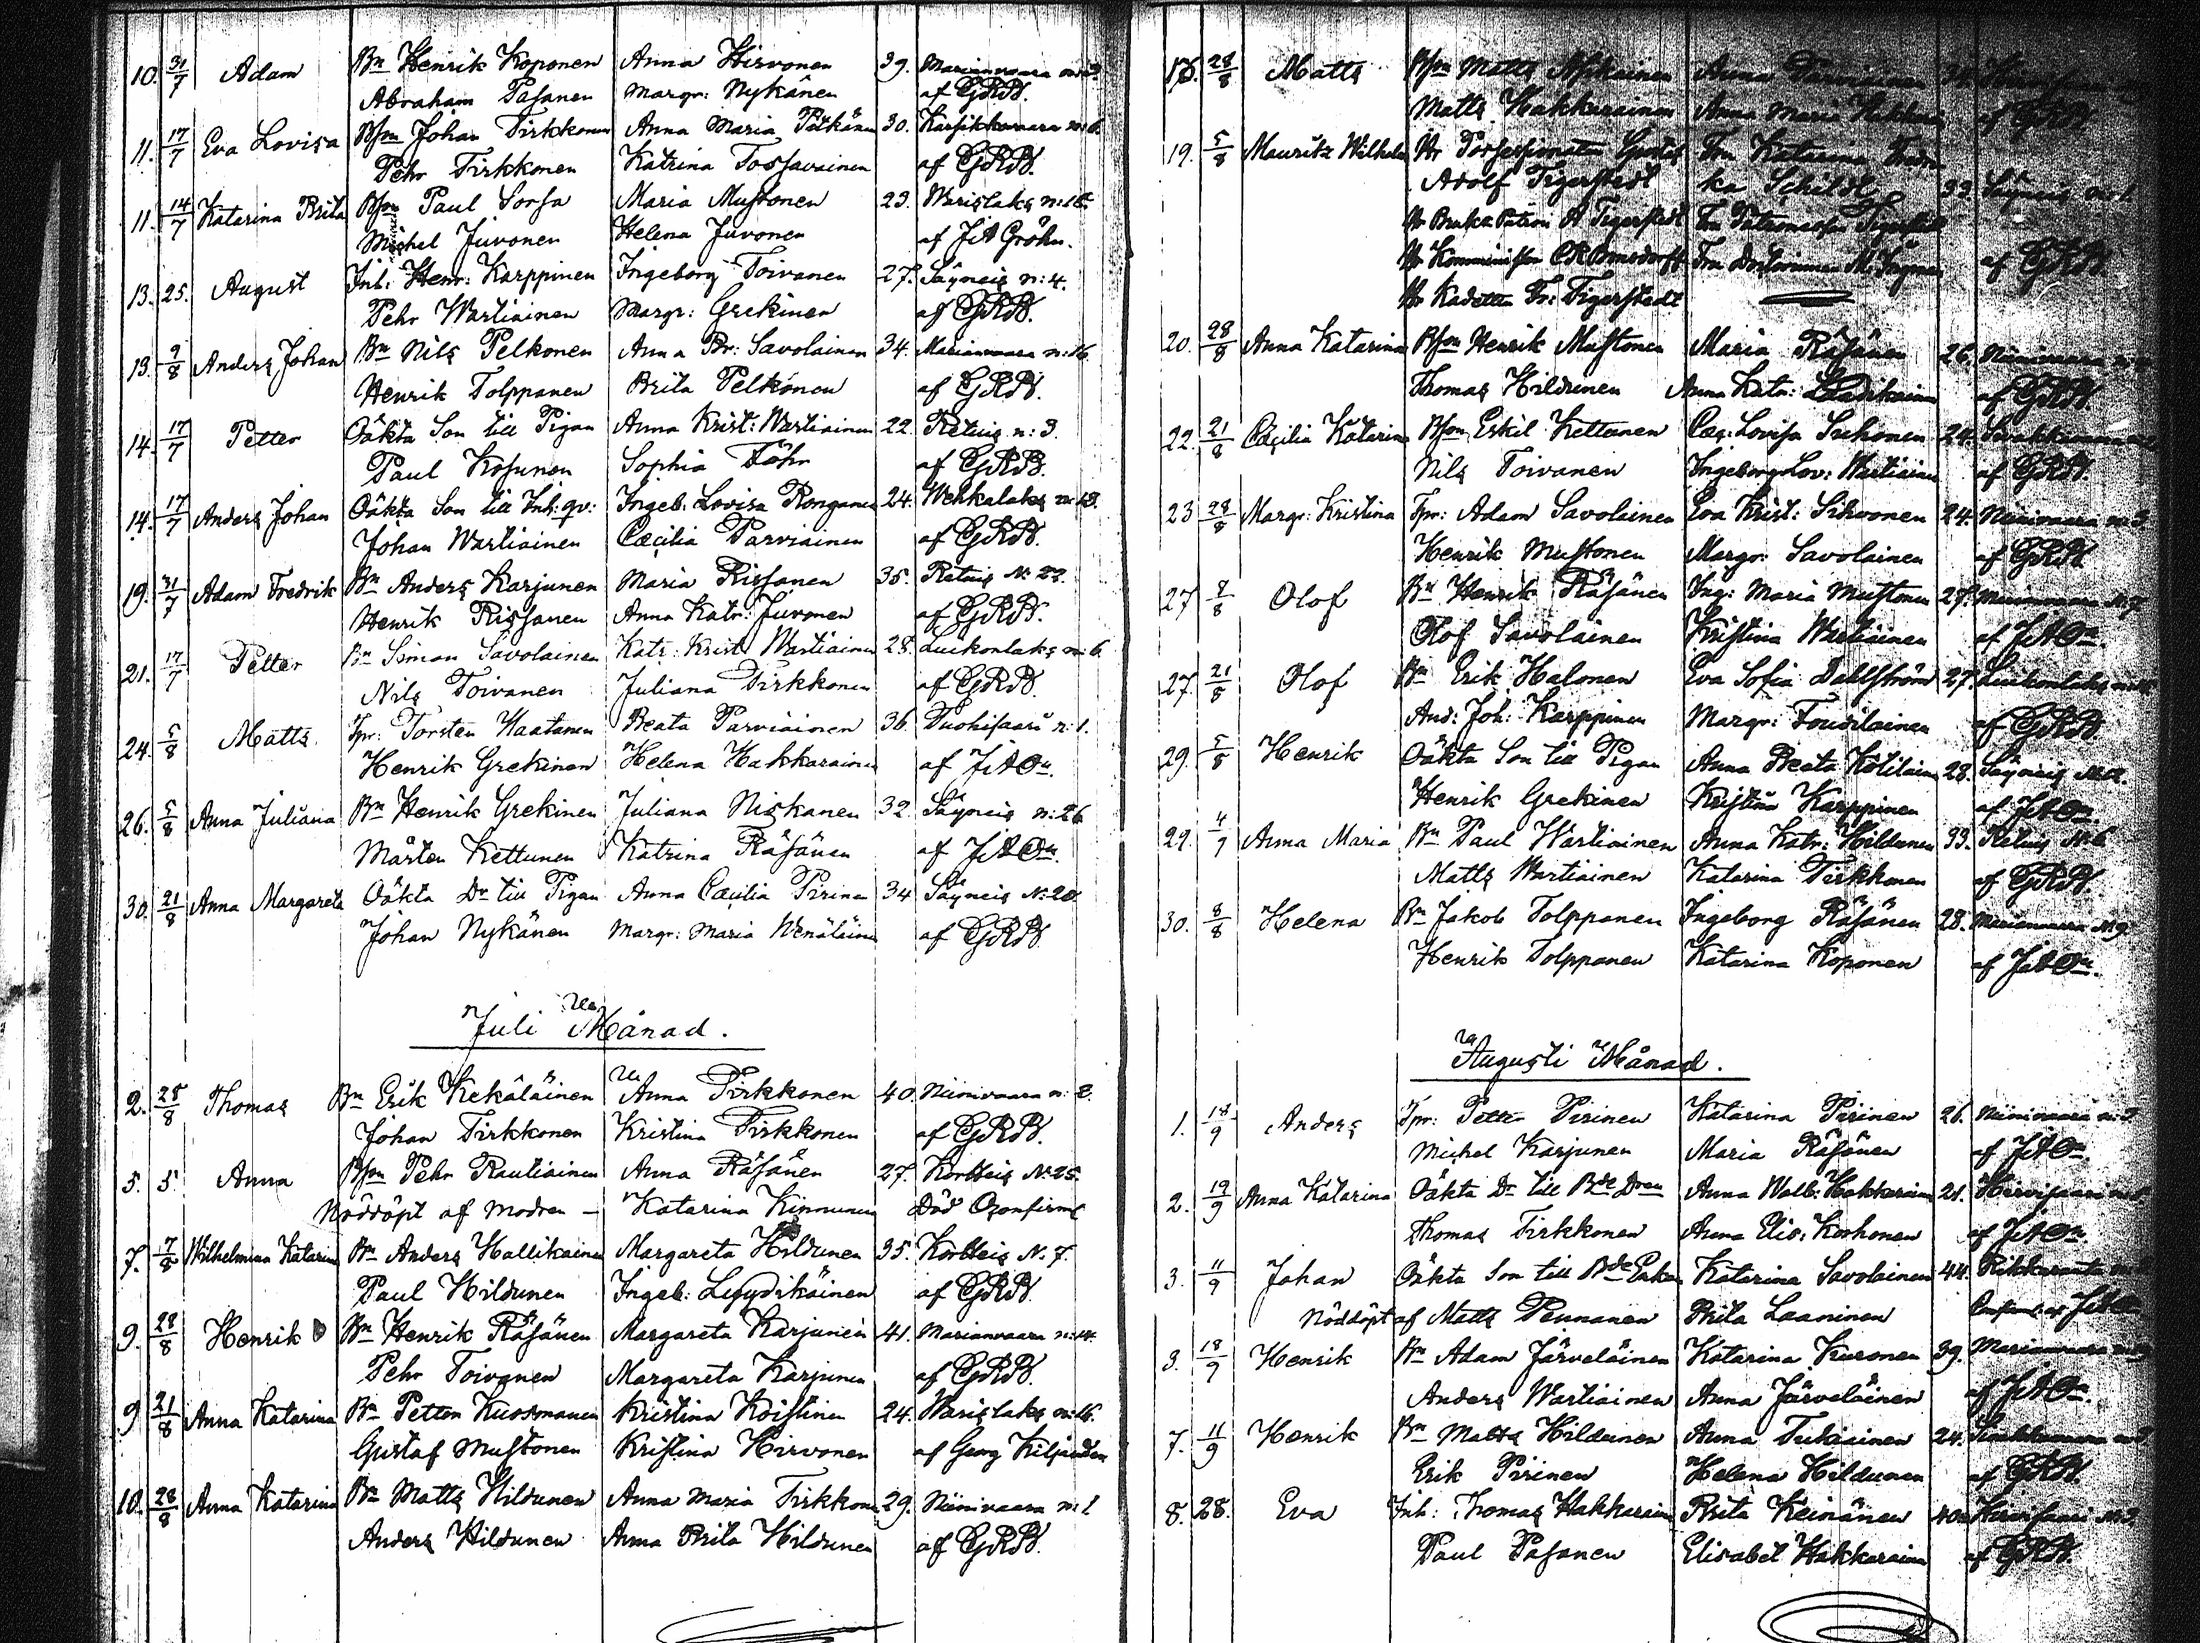 10. 31/7 Adam Bn Henrik Koponen Anna Hirvonen 39. Marianvaara
Abraham Pasanen Margr: Nykänen af GRB.
11. 17/7 Eva Lovisa Bson Johan Tirkkonen Anna Maria Pitkänen 30. Karsikkovaara n:6.
Pehr Tirkkonen Katrina Tossavainen af GRB.
11. 14/7 Katarina Brita Bson Paul Sorsa Maria Mustonen 23. Warislaks n:15.
Michel Juvonen Helena Juvonen af JA Gröhn.
13. 25. August Inh: Henr: Karppinen Ingeborg Toivanen 27. Säyneis n:4.
Pehr Wartiainen Margr: Grekinen af GRB.
13. 9/8 Anders Johan Bn Nils Pelkonen Anna Br: Savolainen 34. Marianvaara n:16.
Henrik Tolppanen Brita Pelkonen af GRB.
14. 17/7 Petter Oäkta Son till Pigan Anna Krist: Wartiainen 22. Retuis n:3.
Paul Kosunen Sophia Föhr af GRB.
14. 17/7 Anders Johan Oäkta Son till Inh: qv: Ingeb: Lovisa Ronganen 24. Wehkalaks n:13.
Johan Wartiainen Cæcilia Parviainen af GRB.
19. 31/7 Adam Fredrik Bn Anders Karjunen Maria Rissanen 35. Retuis N: 22.
Henrik Rissanen Anna Katr: Juvonen af GRB.
21. 17/7 Petter Bn Simon Savolainen Katr: Krist: Wartiainen 28. Luikonlaks n:6.
Nils Toivanen Juliana Tirkkonen af GRB.
24. 5/8 Matts Tpr: Torsten Haatanen Beata Parviainen 36. Tuohisaari n:1.
Henrik Grekinen Helena Hakkarainen af JAOn.
26. 5/8 Anna Juliana Bn Henrik Grekinen Juliana Niskanen 32. Säyneis n:26
Mårten Kettunen Katrina Räsänen af JAOn.
30. 21/8 Anna Margareta Oäkta Dr till Pigan Anna Cæcilia Pirinen 34 Säyneis N:20
Johan Nykänen Margr: Maria Wenäläinen af GRB.
Juli Månad.
2. 28/8 Thomas Bn Erik Kekäläinen Anna Tirkkonen 40. Niinivaara n:2.
Johan Tirkkonen Kristina Tirkkonen af GRB.
5. 5 Anna Bson Pehr Rautiainen Anna Räsänen 27. Kortteis N:25.
Nöddöpt af Modren – Katarina Kinnunen Död Oconfirm
7. 7/8 Wilhelmina Katarina Bn Anders Hallikainen Margareta Hildunen 35. Kortteis N. 7.
Paul Hildunen Ingeb: Leyydikäinen af GRB.
9. 28/8 Henrik Bn Henrik Räsänen Margareta Karjunen 41. Marianvaara n:14.
Pehr Toivanen Margareta Karjunen af GRB.
9 21/8 Anna Katarina Bn Petter Kuosmanen Kristina Koistinen 24. Warislaks n:16.
Gustaf Mustonen Kristina Hirvonen af Georg Kiljanden
10. 28/8 Anna Katarina Bn Matts Hildunen Anna Maria Tirkkonen 29. Niinivaara n:1
Anders Hildunen Anna Brita Hildunen af GRB.
18. 28/8 Matts Bson Matts Anna
Matts Hakkarainen Anna Maria af GRB
19. 5/8 Mauritz Wilhelm Hr Gustaf Fru Katarina
Adolf Tigerstedt ka Schildt 33. Säyneis n:1.
Hr Bruks Patron A Tigerstedt Fru Patronessan Tigerstedt
Hr Komminister CR Bonsdorff Fru Doctorinnan M: Ingman af GRB
Hr Kadetten Fr: Tigerstedt
20. 28/8 Anna Katarina Bson Henrik Mustonen Maria Räsänen 26. Niinivaara
Thomas Hildunen Anna Katr: af GRB.
22. 21/8 Cæcilia Katarina Bson Eskil Kettunen Cæc: Lovisa Suhonen 24. Sivakkavaara
Nils Toivanen Ingeborg Lov: Wartiainen af GRB.
23 28/8 Margr: Kristina Tpr: Adam Savolainen Eva Krist: Sihvonen 24. Niinivaara n:3
Henrik Mustonen Margr: Savolainen af GRB
27 8/8 Olof Bn Henrik Räsänen Ing: Maria Mustonen 27. Marianvaara N:7
Olof Savolainen Kristina Wartiainen af JAOn.
27. 21/8 Olof Bn Erik Halonen Eva Sofia Dahlström 27. Luikonlaks
And: Joh: Karppinen Margr: Tousilainen af GRB
29. 5/8 Henrik Oäkta Son till Pigan Anna Beata Kötilainen 28. Säyneis
Henrik Grekinen Kristina Karppinen af JAOn
29. 4/9 Anna Maria Bn Paul Wartiainen Anna Katr: Hildunen 33. Retuis N:6
Matts Wartiainen Katarina Tirkkonen af GRB.
30. 8/8 Helena Bn Jakob Tolppanen Ingeborg Räsänen 28. Marianvaara N:9
Henrik Tolppanen Katarina Koponen af JAOn.
Augusti Månad.
1. 18/9 Anders Tpr: Petter Pirinen Katarina Pirinen 26. Niinivaara n:2
Michel Karjunen Maria Räsänen af JAOn.
2. 19/9 Anna Katarina Oäkta Dr till Bde Dren Anna Walb: Hakkarainen 21. Hirvisaari
Thomas Tirkkonen Anna Elis: Korhonen af JAOn.
3. 11/9 Johan Oäkta Son till Bde Enkan Katarina Savolainen 44. Rikkaranta
Nöddöpt af Matts Pennanen Brita Laaninen
3. 18/9 Henrik Bn Adam Järveläinen Katarina Kuronen 39. Marianvaara
Anders Wartiainen Anna Järveläinen af JAOn.
7. 11/9 Henrik Bn Matts Hildunen Anna Tukiainen 24. Sivakkavaara
Erik Pirinen Helena Hildunen af GRB.
8. 28. Eva Inh: Thomas Hakkarainen Brita Keinänen 40. Hirvisaari N:2
Paul Pasanen Elisabet Hakkarainen af GRB.